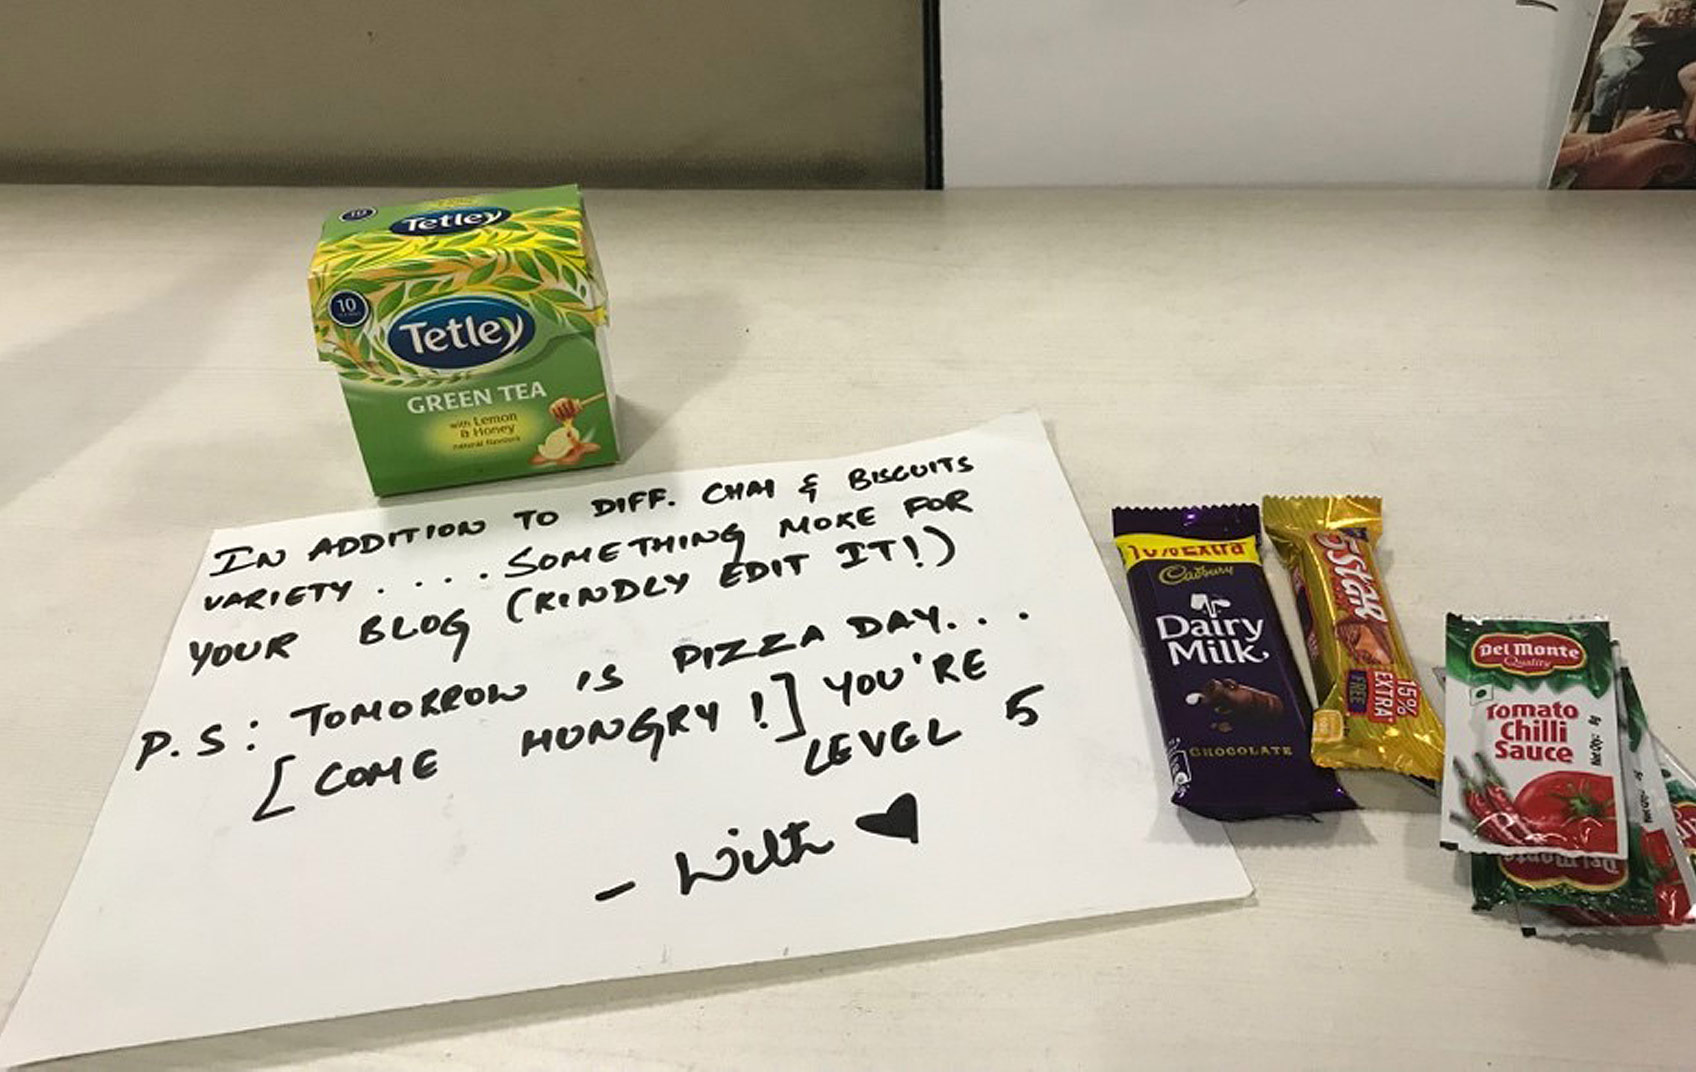 10
Tetley
10
Tetley
GREEN TEA
with Lemon
& Honey
natural flavours
IN ADDITION TO DIFF. CHAI & BISCUITS
VARIETY.... SOMETHING MORE FOR
YOUR BLOG (KINDLY EDIT IT!)
P.S: TOMORROW IS PIZZA DAY...
[COME HUNGRY!] YOU'RE
LEVEL 5
- With ♥
10% Extra
Cadbury
Dairy
Milk
CHOCOLATE
5star
15%
EXTRA
FREE
Del Monte
Quality
Tomato
Chilli
Sauce
Net Qty.: 8g
Del Monte